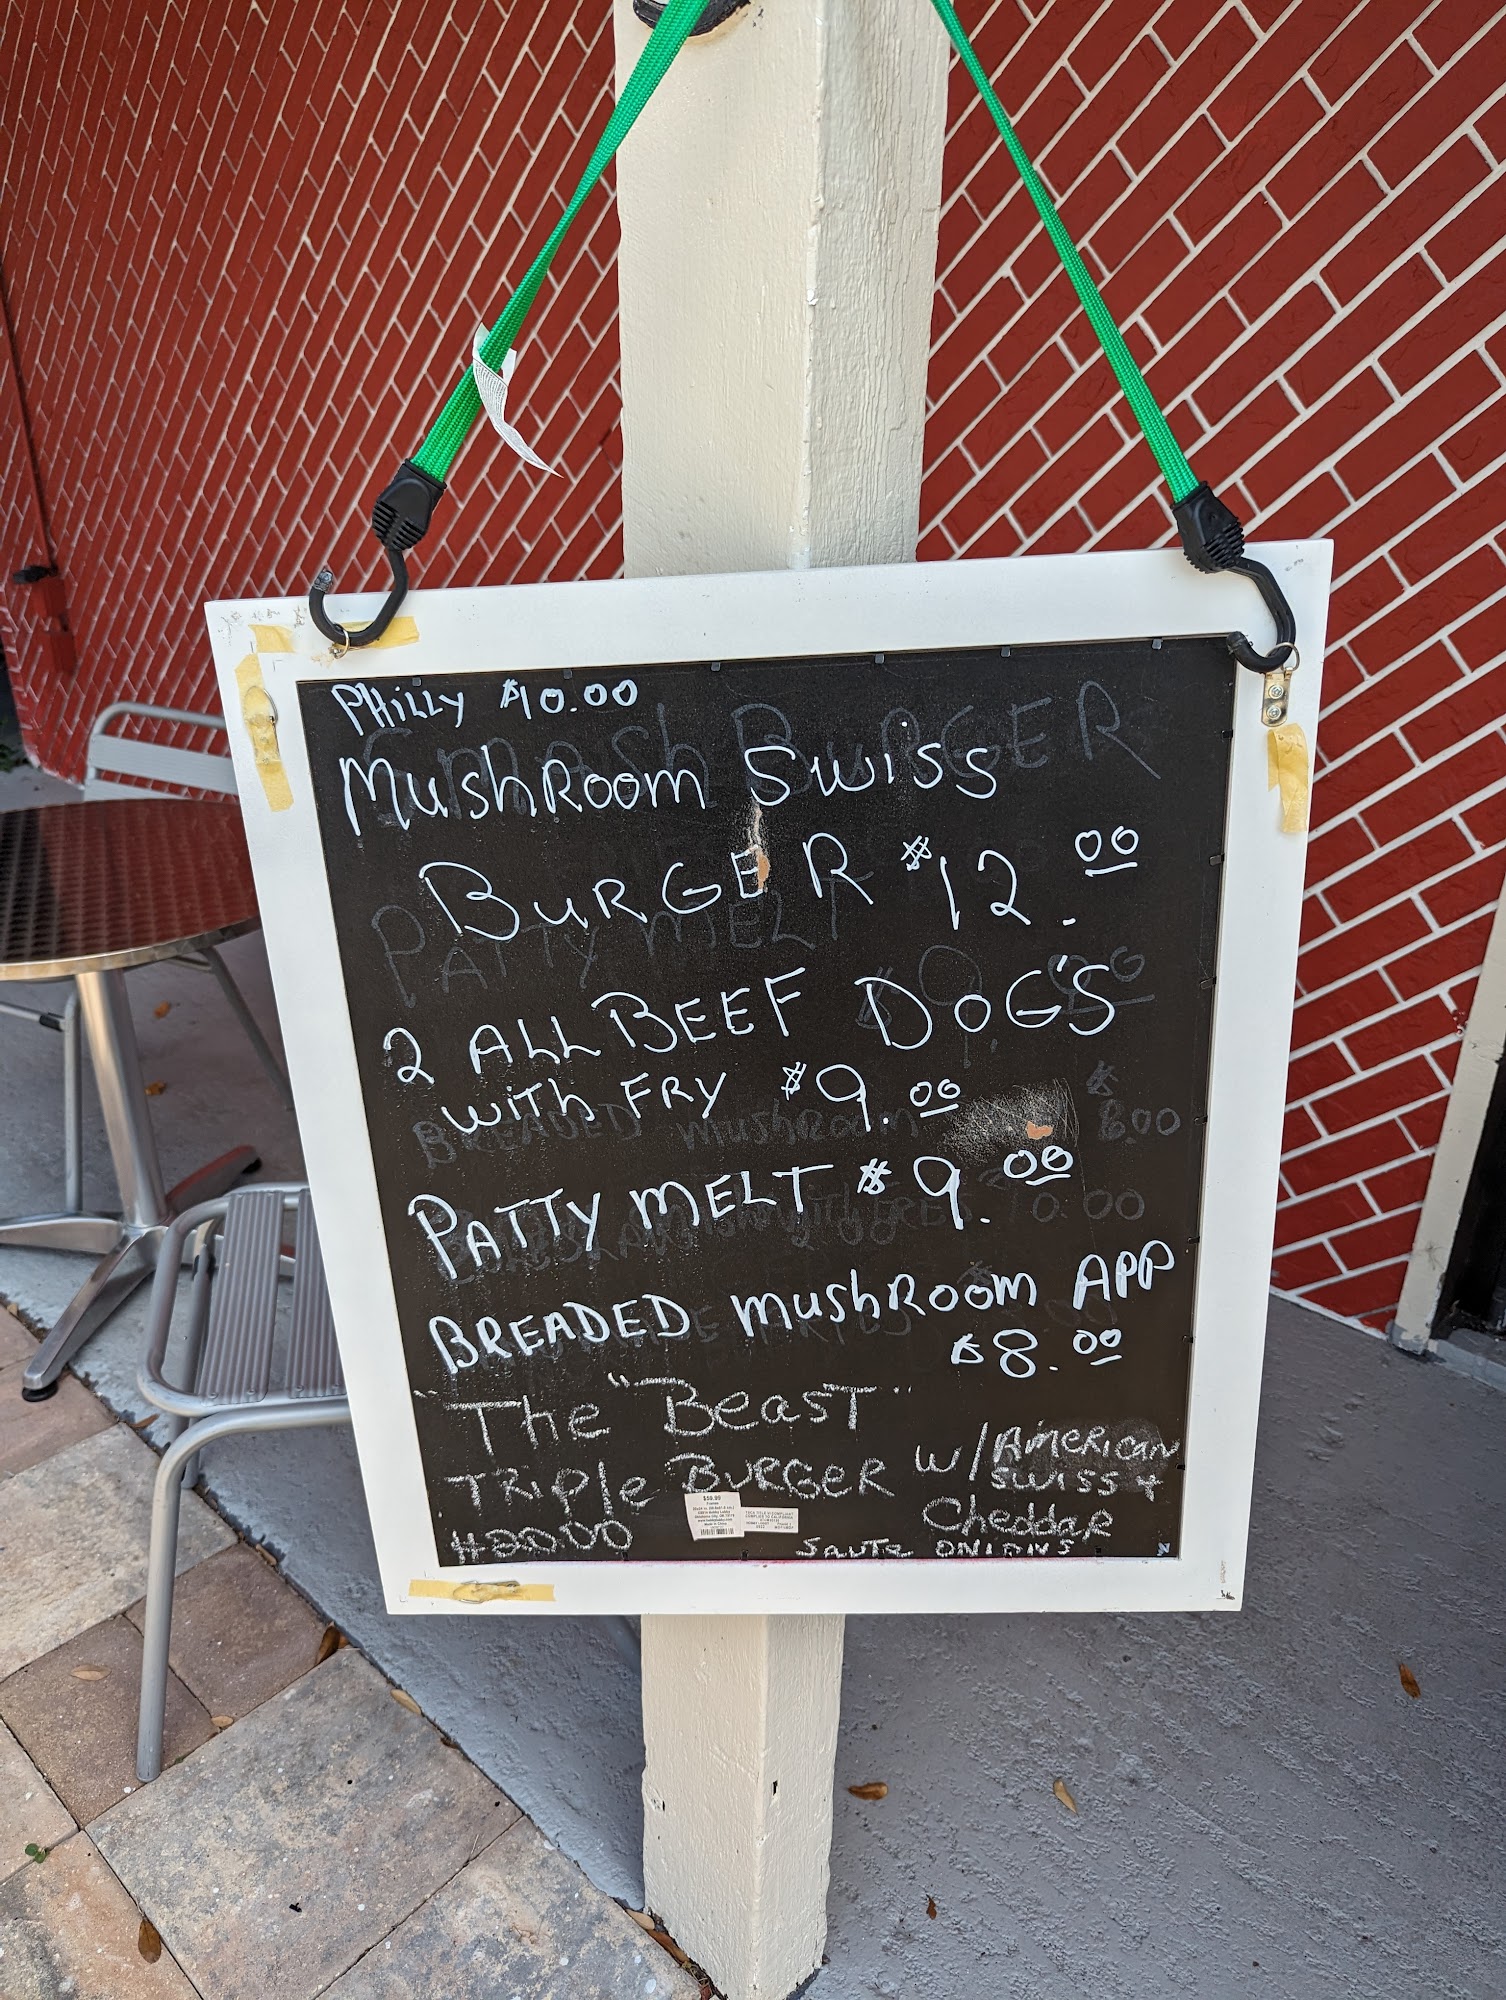 PHILLY $10.00
MushRoom Swiss
BURGER $12.00
2 ALL BEEF DOG'S
with FRY $9.00
PATTY MELT $9.00
BREADED mushRoom APP
$8.00
"The "Beast"
TRiple BURGER w/AmeRican
swiss +
Cheddar
$20.00
Saute onions
$59.99